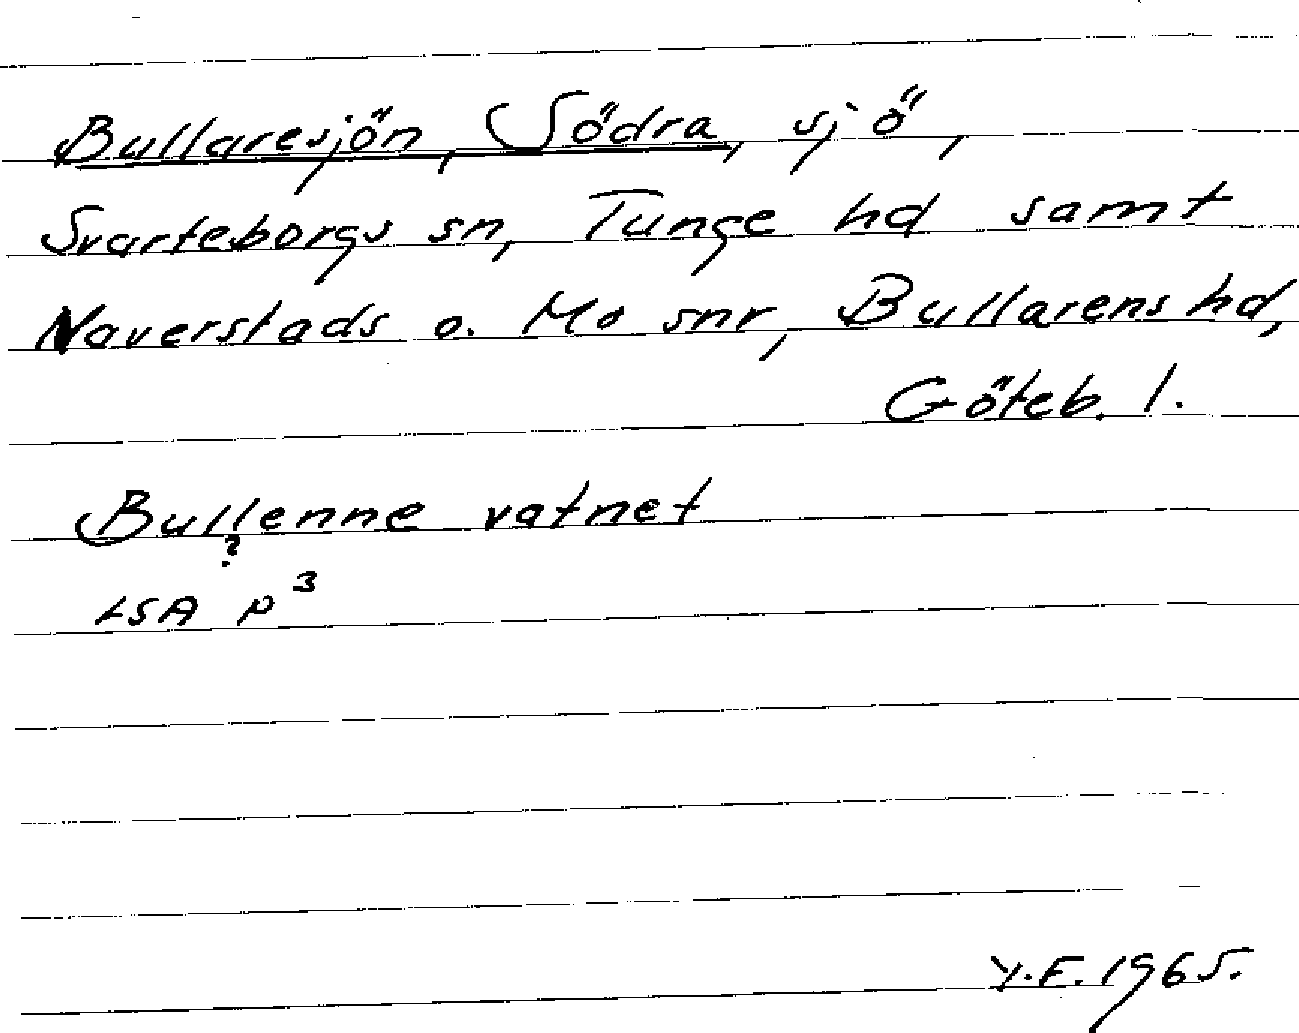 Bullaresjön, Södra, sjö,
Svarteborgs sn, Tunge hd samt
Naverstads o. Mo snr, Bullarens hd,
Göteb. l.
Bullenne vatnet
?
LSA p3
Y.F. 1965.